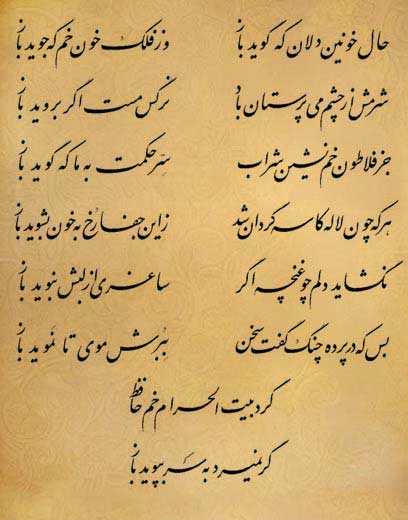 حال خونین دلان که گوید باز وز فلک خون خم که جوید باز
شرمش از چشم می پرستان باد نرگس مست اگر بروید باز
جز فلاطون خم نشین شراب سِر حکمت به ما که گوید باز
هر که چون لاله کاسه گردان شد زاین جفا رخ به خون بشوید باز
نگشاید دلم چو غنچه اگر ساغری از لبش نبوید باز
بس که در پرده چنگ گفت سخن بِبُرش موی تا نَموید باز
گرد بیت الحرام خم حافظ
گر نمیرد به سر بپوید باز